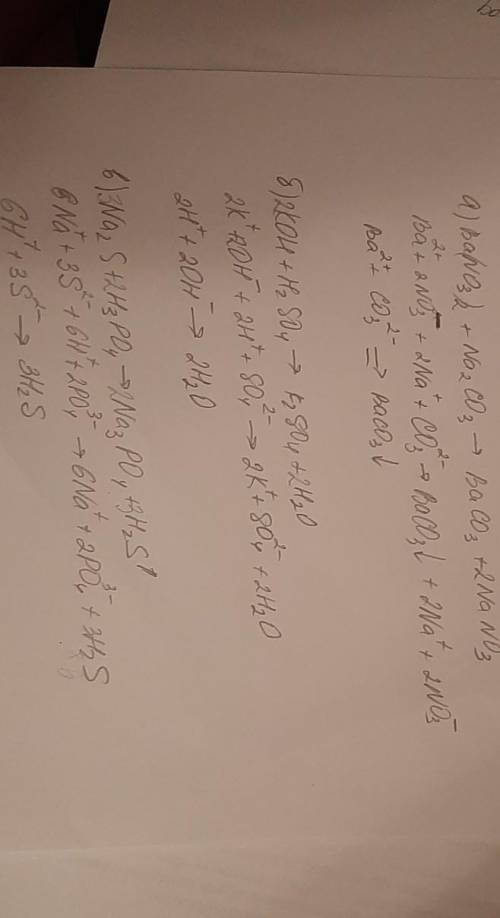 а) Ba(NO₃)₂ + Na₂CO₃ → BaCO₃ + 2NaNO₃
Ba²⁺ + 2NO₃⁻ + 2Na⁺ + CO₃²⁻ → BaCO₃↓ + 2Na⁺ + 2NO₃⁻
Ba²⁺ + CO₃²⁻ → BaCO₃↓
б) 2KOH + H₂SO₄ → K₂SO₄ + 2H₂O
2K⁺ + 2OH⁻ + 2H⁺ + SO₄²⁻ → 2K⁺ + SO₄²⁻ + 2H₂O
2H⁺ + 2OH⁻ → 2H₂O
в) 3Na₂S + 2H₃PO₄ → 2Na₃PO₄ + 3H₂S↑
6Na⁺ + 3S²⁻ + 6H⁺ + 2PO₄³⁻ → 6Na⁺ + 2PO₄³⁻ + 3H₂S
6H⁺ + 3S²⁻ → 3H₂S